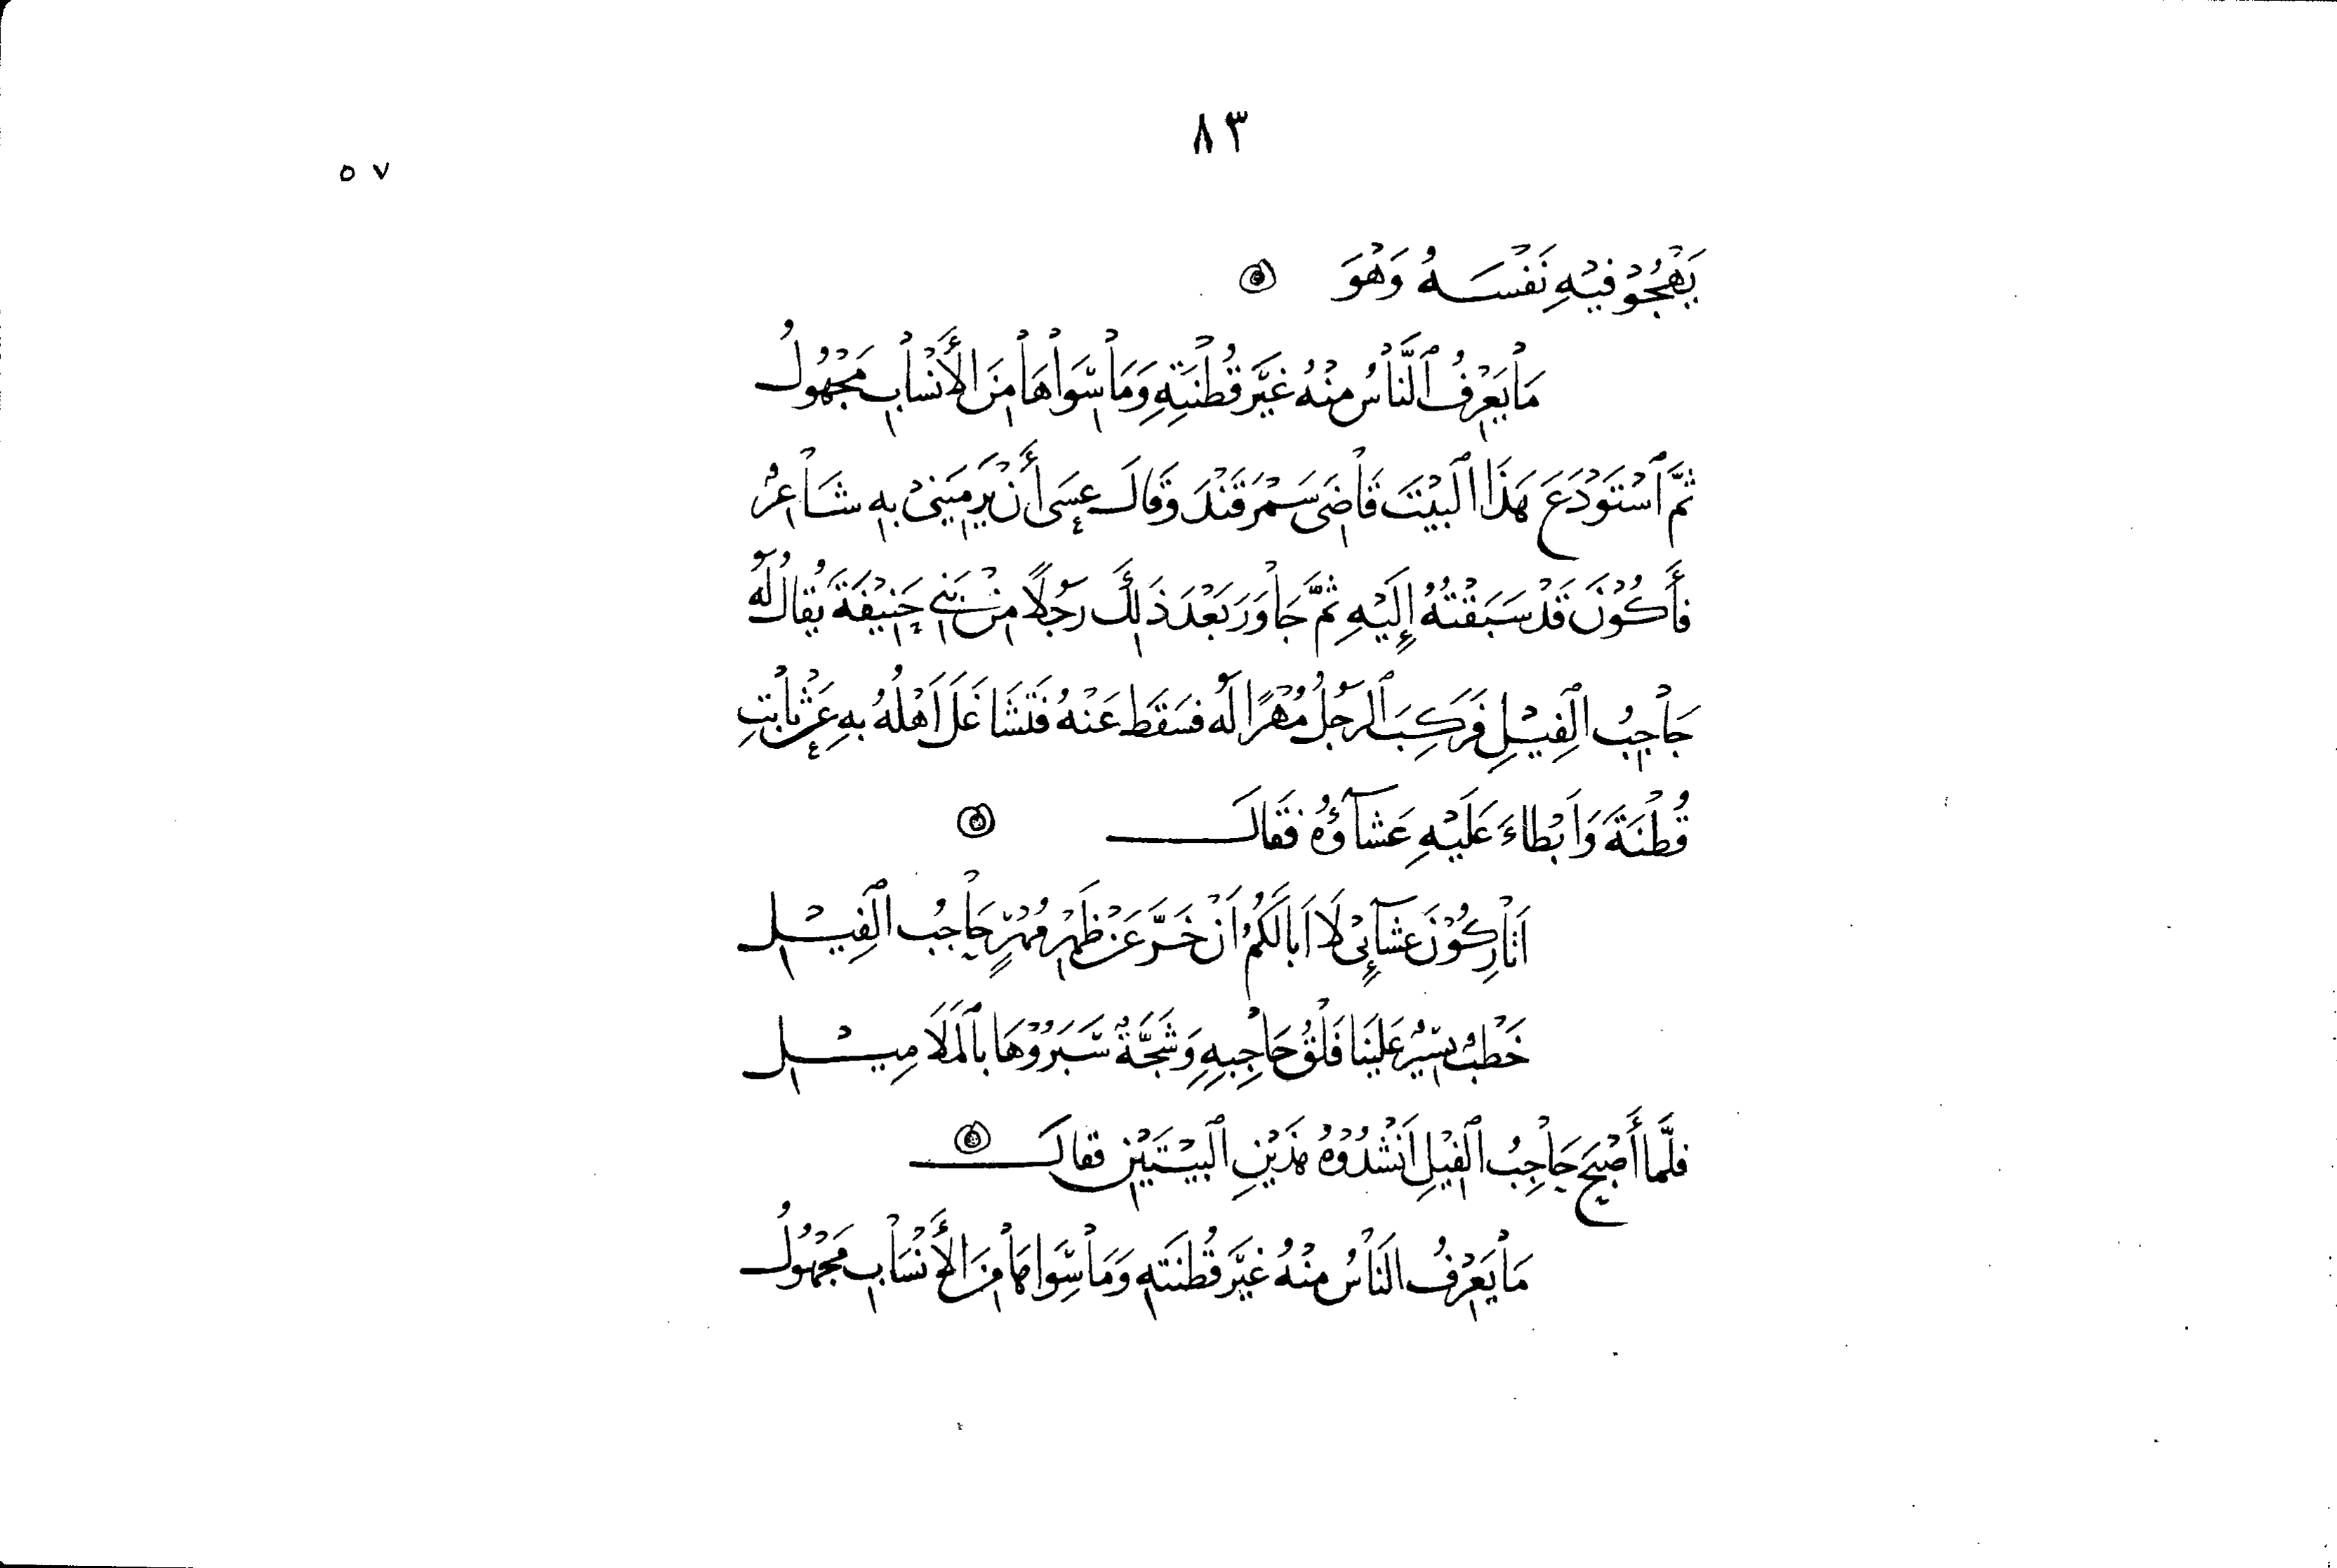 ٨٣
٥٧
يَهْجُوْ فِيْهِ نَفْسَهُ وَهْوَ
مَاْ يَعْرِفُ ٱلنَّاْسُ مِنْهُ غَيْرَ قُطْنَتِهِ وَمَاْ سِّوَاْهَاْ مِنَ الْأَنْسَاْبِ مَجْهُوْلُ
ثمَّ ٱسْتَوْدَعَ هَذَا ٱلبَيْتَ قَاْضِىَ سَمْرَقَنْدَ وَقَالَ عَسَى أَنْ يَرْمِيَنِىْ بِهِ شَاْعِرٌ
فأَكُوْنَ قَدْ سَبَقْتُهُ إِلَيْهِ ثمَّ جَاْوَرَ بَعْدَ ذَلِكَ رَجُلاً مِنْ بَنِى حَنِيْفَةَ يُقَالُ لَهُ
حَاْجِبُ الْفِيْلِ فَرَكِبَ ٱلرَجُلُ مُهْرًا لَهُ فسَقَطَ عَنْهُ فَتَشَاغَلَ اَهْلُهُ بِهِ عَنْ ثَاْبِتِ
قُطْنَةَ وَاَبْطاءَ عَلَيْهِ عَشَآؤُهُ فقَالَ
اَتَاْرِكُوْنَ عَشَآئِىْ لَا اَبَالَكُمُ اَنْ خَرَّ عَنْ ظَهْرِ مُهْرٍ حَاْجِبُ ٱلْفِيْلِ
خَطْبٌ يَسِيْرٌ عَلَيْنَا فَلْقُ حَاْجِبِهِ وَشَجَّةٌ سَّبَرُوْهَا بِٱلْمَلَامِيْلِ
فلَمَّا أَصْبَحَ حَاْجِبُ ٱلْفِيْلِ اَنْشَدُوْهُ هَذَيْنِ ٱلبَيْتَيْنِ فقَالَ
مَاْ يَعْرِفُ النَاْسُ مِنْهُ غَيْرَ قُطْنَتِهِ وَمَاْ سِّوَاهَاْ مِنَ الْأَنْسَاْبِ مَجْهُوْلُ